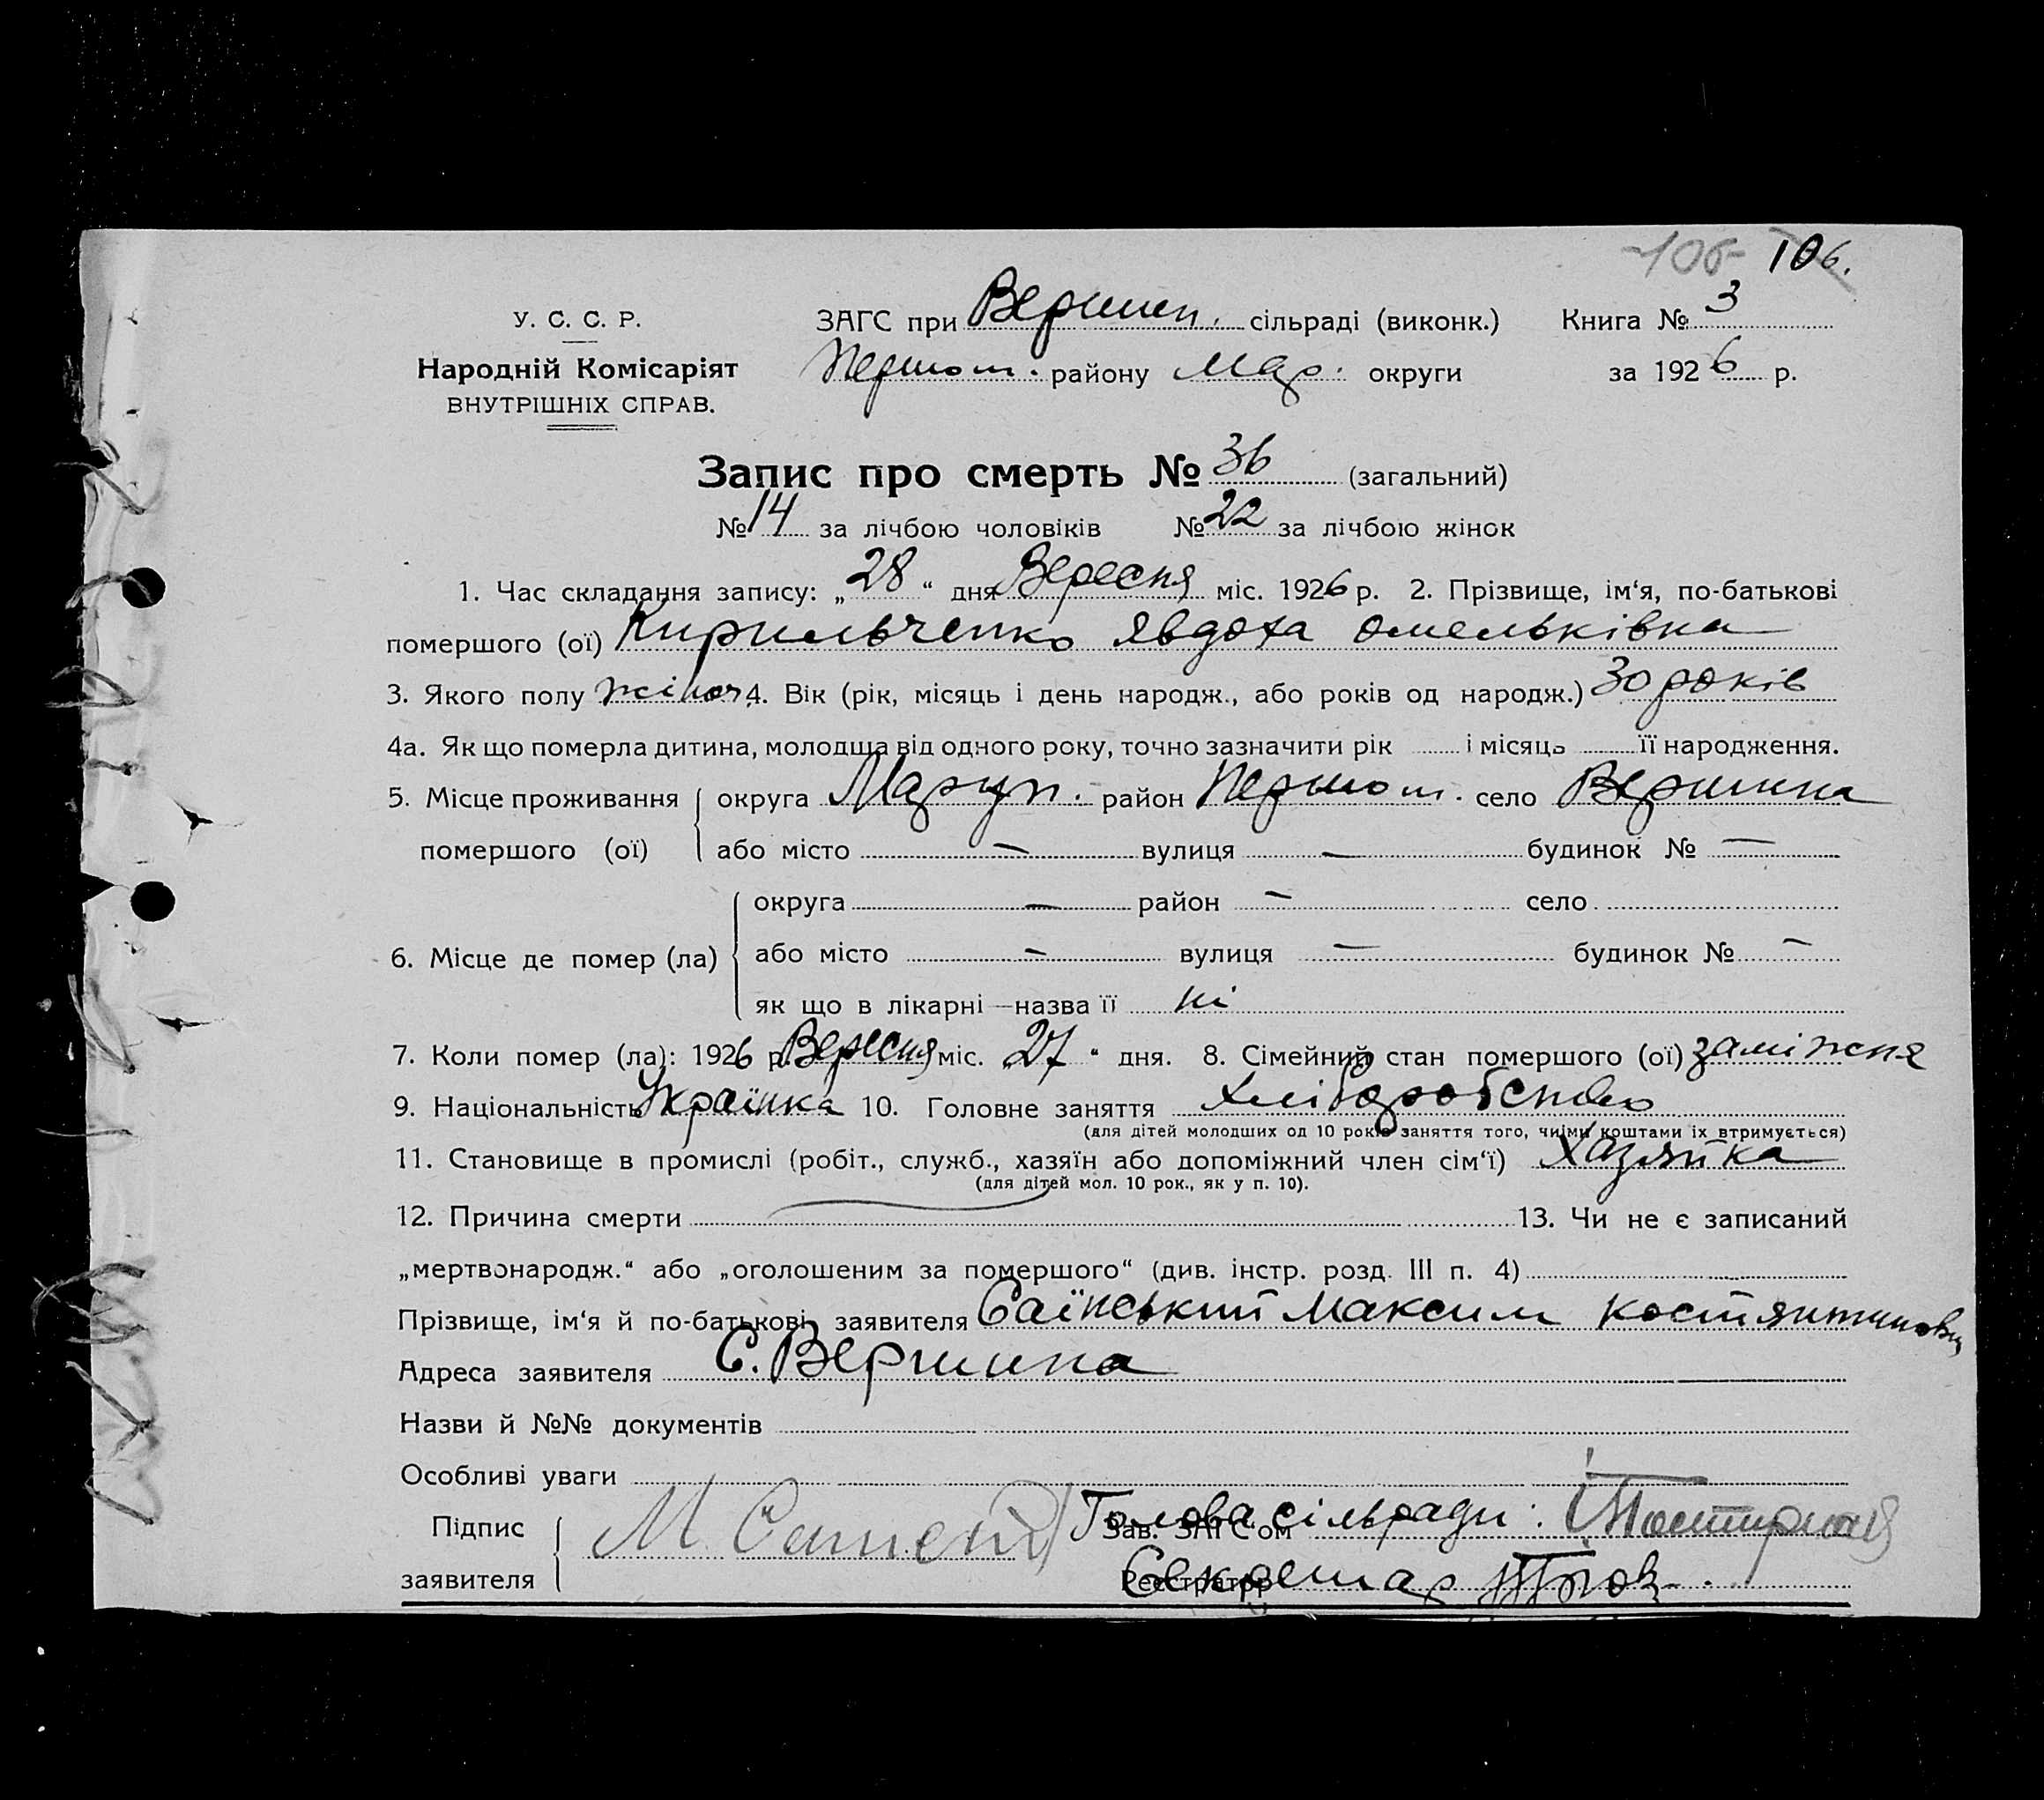 106 106.
У. С. С. Р.
Народній Комісаріят
ВНУТРІШНІХ СПРАВ.
ЗАГС при Вершин. сільраді (виконк.) Книга № 3
Першот. району Мар. округи за 1926 р.
Запис про смерть № 36 (загальний)
№ 14 за лічбою чоловіків № 22 за лічбою жінок
1. Час складання запису: „28“ дня Вересня міс. 1926 р. 2. Прізвище, ім‘я, по-батькові
помершого (ої) Кирильченко Явдоха Омельківна
3. Якого полу жіноч 4. Вік (рік, місяць і день народж., або років од народж.) 30 років
4а. Як що померла дитина, молодща від одного року, точно зазначити рік ...... і місяць ...... її народження.
5. Місце проживання помершого (ої) округа Маріуп. район Першот. село Вершина
або місто — вулиця — будинок № —
6. Місце де помер (ла) округа — район — село
або місто — вулиця — будинок № —
як що в лікарні—назва її ні
7. Коли помер (ла): 1926 р. Вересня міс. 27 “ дня. 8. Сімейний стан помершого (ої) заміжня
9. Національність Українка 10. Головне заняття Хліборобство
(для дітей молодших од 10 років заняття того, чиїми коштами їх втримується)
11. Становище в промислі (робіт., служб., хазяїн або допоміжний член сім‘ї) Хазяйка
(для дітей мол. 10 рок., як у п. 10).
12. Причина смерти — 13. Чи не є записаний
„мертвонародж.“ або „оголошеним за помершого“ (див. інстр. розд. III п. 4)
Прізвище, ім‘я й по-батькові заявителя Саїнський Максим
Адреса заявителя С. Вершина
Назви й №№ документів
Особливі уваги
Підпис заявителя М
Зав. ЗАГС'ом Голова сільради:
Реєстратор Секретар